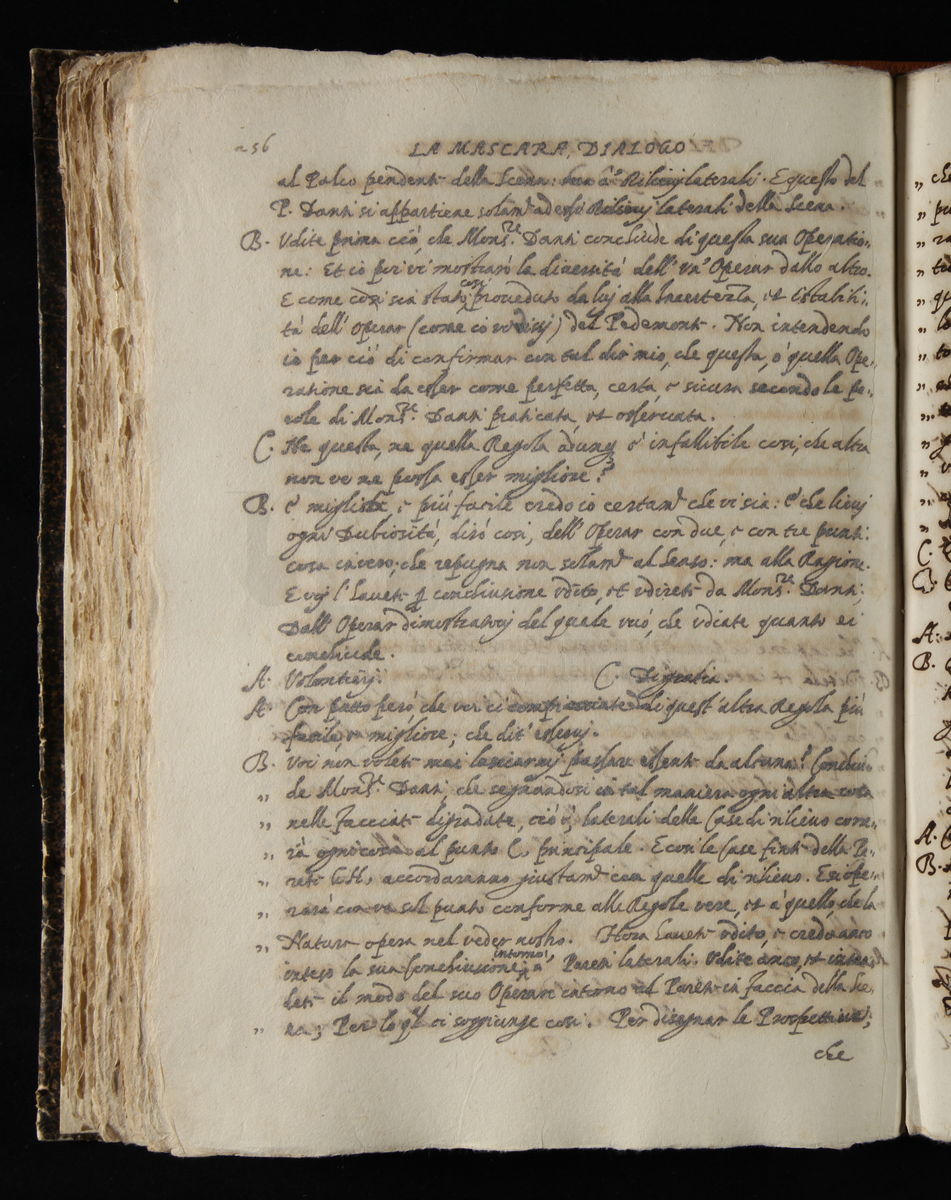 256 LA MASCARA, DIALOGO
al Palco pendente della Scena: hor a' Rilievij laterali. E questo del
P. Danti si appartiene solam.te ad essi Rilievij laterali della Scena.
B. Udite prima ciò, che Mons.re Danti conclude di questa sua Operatio-
ne: Et io poi vi mostrarò la diversità dell' un' Operar dallo altro.
E come così sia stato così proveduto da luj alla Incertezza, et Instabili-
tà dell' operar (come io vi dissj) del Pedemonte. Non intendendo
io per ciò di confirmar con tal dir mio, che questa, ò quella Ope-
ratione sia da esser come perfetta, certa, e sicura secondo le pa-
role di Mons.re Danti praticata, et osservata.
C. Ne questa, ne quella Regola adunq è infallibile così, che altra
non ve ne possa esser migliore?
B. E' migliore, e più facile credo io certam.te che vi sia: e' che lievj
ogni Dubiosità, dirò così, dell' Operar con due, e con tre punti:
cosa invero, che repugna non solam.te al Senso: ma alla Ragione.
E voj l' havete p conclusione udito, et udirete da Mons.re Danti;
Dall' Operar dimostratovj del quale vuò, che udiate quanto ei
conclude.
A. Volontierj. C. Di gratia.
A. Con patto però, che voi ci compiacciate di quest' altra Regola più
facile, e migliore; che dite esservj.
B. Voi non volete mai lasciarmj passare essente da alcuna? Conclu-
„ de Mons.re Danti, che segnandosi in tal maniera ogni altra cosa
„ nelle facciate digradate, ciò è, laterali delle Case di rilievo corre-
„ rà ogni cosa al punto C, principale. E con le Case finte della Pa-
„ rete LH, accordaranno giustam.te con quelle di rilievo. E si ope-
„ rarà con un sol punto conforme alle Regole vere, et à quello, che la
„ Natura opera nel veder nostro. Hora havete udito, e credo anco
inteso la sua Conclusione intorno a' Pareti laterali. Udite anco, et inten-
dete il modo del suo Operare intorno al Parete in faccia della Sce-
„ na; Per lo ql ci soggiunge così. Per disegnar le Prospettive,
che